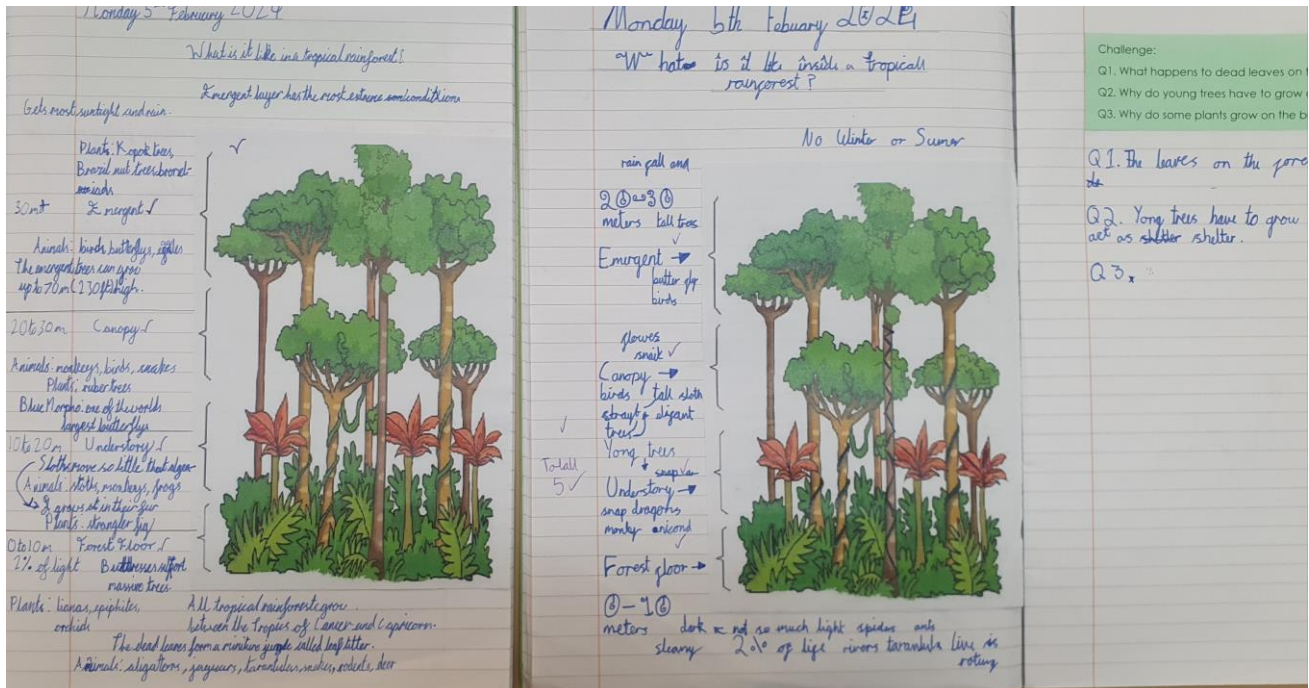 Monday 5th February 2024
What is it like in a tropical rainforest?
Emergent layer has the most extreme conditions
Gets most sunlight and rain.
Plants: Kapok trees,
Brazil nut trees
30m+ Emergent
Animals: birds, butterflys,
The emergent trees can grow
up to 70m (230ft) high.
20 to 30m Canopy
Animals: monkeys, birds, snakes
Plants: ruber trees
Blue Morpho: one of the worlds
largest butterflys
10 to 20m Understory
Sloths move so little that algea
Animals: sloths, monkeys, frogs
grows it in their fur
Plants: strangler fig
0 to 10m Forest Floor
2% of light Buttresses support
massive trees
Plants: lianas, epiphites,
orchids
All tropical rainforests grow
between the Tropics of Cancer and Capricorn.
The dead leaves form a miniture jungle called leaf litter.
Animals: aligators, jaguars, tarantulas, snakes, rodents, deer
Monday 5th Febuary 2024
What is it like inside a tropicall
rainforest?
No Winter or Sumer
rain fall and
20-30
meters tall tres
Emergent →
butter fly
birds
flowes
snaik
Canopy →
birds tall sloth
strayt
trees
Yong trees
Totall
5
Understory →
snap dragons
monky anicond
Forest floor →
0-10
meters dark not so much light spiders ants
steamy 20% of life rivors tarantula live is
roting
Challenge:
Q1. What happens to dead leaves on
Q2. Why do young trees have to grow
Q3. Why do some plants grow on the
Q1. The leaves on the fore
Q2. Yong trees have to grow
act as shelter.
Q3.